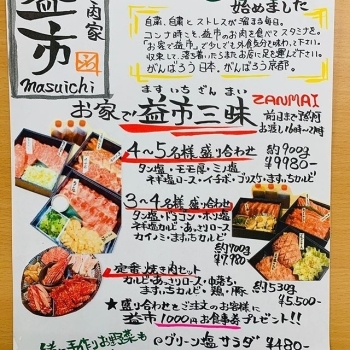 始めました
肉家
益市
masuichi
自粛、自粛とストレスが溜まる毎日。
コンナ時こそ、益市のお肉を食べてスタミナを。
「お家で益市」で少しでも外食気分を味わって下さい。
収束して、落ち着いたらまたお店に足を運んで下さい。
がんばろう日本、がんばろう京都。
ますいちざんまい
お家で益市三昧 ZANMAI
前日まで予約
お渡し16時〜21時
4〜5名様 盛り合わせ 約900g
¥9980-
タン塩・モモ厚・ミノ塩
ネギ塩ロース・イチボ・ゴリスケ・ますいちカルビ
3〜4名様 盛り合わせ
タン塩・ドラゴン・ホソ塩
ネギ塩カルビ・あっさりロース
カイノミ・ますいちカルビ
約700g
¥7980
定番 焼き肉セット 約530g
カルビ・あっさりロース・中落ち
ますいちカルビ・鶏・豚 ¥5.500-
★ 盛り合わせをご注文のお客様に
益市 1000円お食事券プレゼント!!
手作りお野菜も
グリーン塩サラダ ¥480-